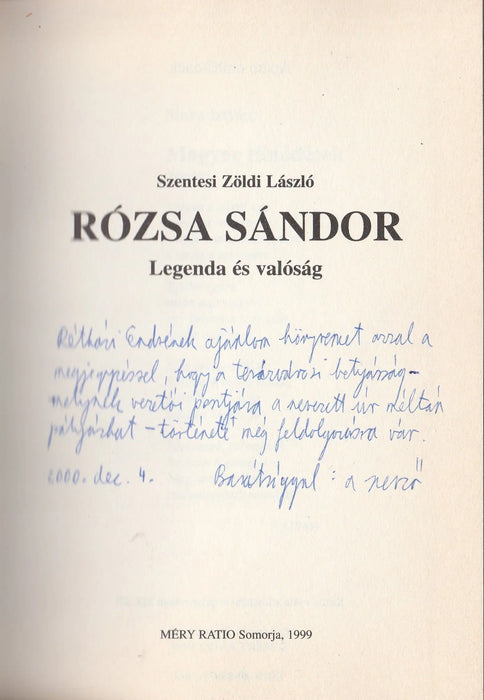 Szentesi Zöldi László
RÓZSA SÁNDOR
Legenda és valóság
Endrének ajánlom könyvemet azzal a
megjegyzéssel, hogy a terézvárosi betyárság –
melynek vezetői posztjára a nevezett úr méltán
pályázhat – története még feldolgozásra vár.
2000. dec. 4. Barátsággal: a szerző
MÉRY RATIO Somorja, 1999